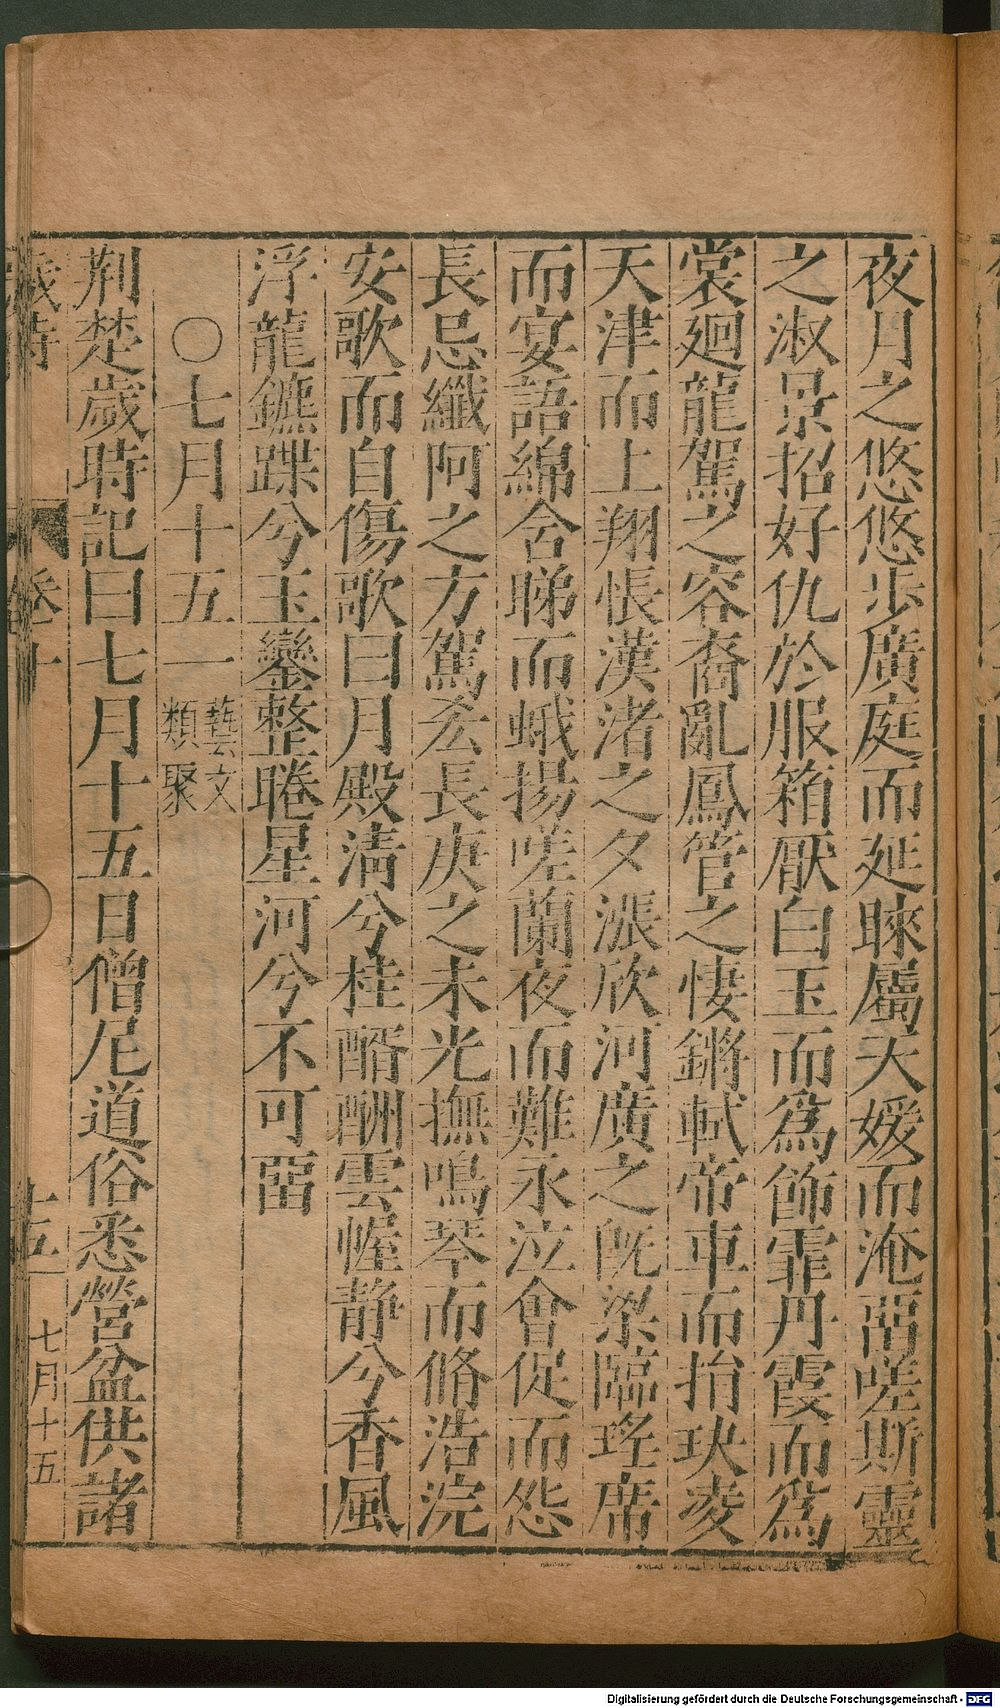 夜月之悠悠步廣庭而延睞屬天媛而淹畱嗟斯靈
之淑景招好仇於服箱厭白玉而爲飾霏丹霞而爲
裳廻龍駕之容裔亂鳳管之悽鏘軾帝車而捐玦凌
天津而上翔悵漢渚之夕漲欣河廣之旣梁臨瑤席
而宴語綿含睇而蛾揚嗟蘭夜而難永泣會促而怨
長忌纖阿之方駕忩長庚之未光撫鳴琴而脩浩浣
安歌而自傷歌曰月殿淸兮桂醑酬雲幄靜兮香風
浮龍鑣蹀兮玉鑾整睠星河兮不可畱
〇七月十五一 藝文類聚
荆楚歲時記曰七月十五日僧尼道俗悉營盆供諸
歲時 卷十 十五 七月十五
Digitalisierung gefördert durch die Deutsche Forschungsgemeinschaft - DFG